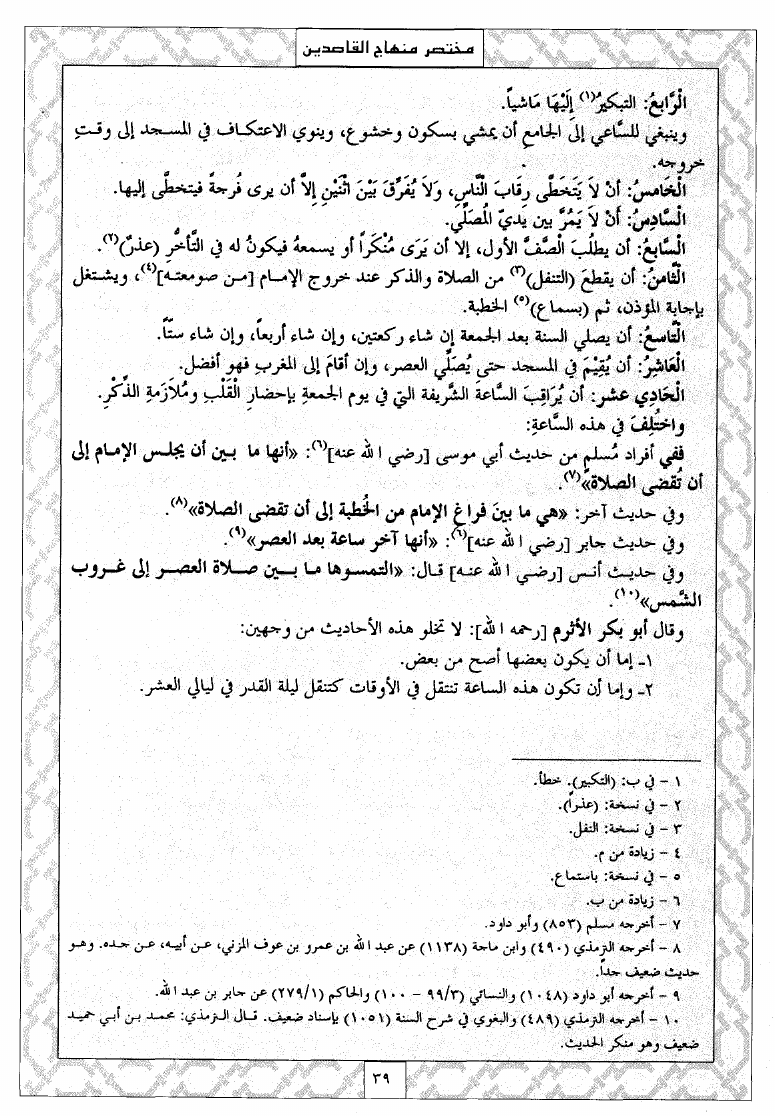 مختصر منهاج القاصدين
الْرَّابِعُ: التبكيرُ(١) إِلَيْهَا مَاشياً.
وينبغي للسَّاعي إلى الجامع أن يمشي بسكون وخشوع، وينوي الاعتكاف في المسجد إلى وقتِ
خروجه.
الْخَامسُ: أنْ لاَ يَتَخَطَّى رِقَابَ الْنَّاسِ، وَلاَ يُفَرِّقَ بَيْنَ اثْنَيْنِ إِلاَّ أن يرى فُرجةً فيتخطَّى إليها.
الْسَّادِسُ: أَنْ لاَ يَمُرَّ بين يديّ الْمُصَلِّي.
الْسَّابعُ: أن يطلُبَ الْصَّفَّ الأول، إلا أن يَرَى مُنْكَراً أو يسمعهُ فيكونُ له في التَّأخُّرِ (عذرٌ)(٢).
الْثَّامنُ: أن يقطعَ (التنفل)(٣) من الصلاة والذكر عند خروج الإمام [من صومعته](٤)، ويشتغل
بإجابة المؤذن، ثم (بسماع)(٥) الخطبة.
الْتَاسعُ: أن يصلي السنة بعد الجمعة إن شاء ركعتين، وإن شاء أربعاً، وإن شاء ستّاً.
الْعَاشِرُ: أن يُقيْمَ في المسجد حتى يُصَلِّي العصر، وإن أقامَ إلى المغربِ فهو أفضل.
الْحَادِي عشر: أن يُرَاقِبَ السَّاعةَ الشَّريفة التي في يوم الجمعةِ بإحضارِ الْقَلْبِ ومُلاَزمَةِ الذِّكْرِ.
واخْتُلِفَ في هذه السَّاعةِ:
ففي أفراد مُسلم من حديث أبي موسى [رضي الله عنه](٦): «أنها ما بين أن يجلس الإمام إلى
أن تُقضى الصلاة»(٧).
وفي حديث آخر: «هي ما بين فراغ الإمام من الخُطبة إلى أن تقضى الصلاة»(٨).
وفي حديث جابر [رضي الله عنه](٦): «أنها آخر ساعة بعد العصر»(٩).
وفي حديث أنس [رضي الله عنه] قال: «التمسوها ما بين صلاة العصر إلى غروب
الشَّمس»(١٠).
وقال أبو بكر الأثرم [رحمه الله]: لا تخلو هذه الأحاديث من وجهين:
١ـ إما أن يكون بعضها أصح من بعض.
٢ـ وإما أن تكون هذه الساعة تنتقل في الأوقات كتنقل ليلة القدر في ليالي العشر.
١ - في ب: (التكبير). خطأ.
٢ - في نسخة: (عذراً).
٣ - في نسخة: النفل.
٤ - زيادة من م.
٥ - في نسخة: باستماع.
٦ - زيادة من ب.
٧ - أخرجه مسلم (٨٥٣) وأبو داود.
٨ - أخرجه الترمذي (٤٩٠) وابن ماجة (١١٣٨) عن عبد الله بن عمرو بن عوف المزني، عن أبيه، عن جده. وهو
حديث ضعيف جداً.
٩ - أخرجه أبو داود (١٠٤٨) والنسائي (٩٩/٣ - ١٠٠) والحاكم (٢٧٩/١) عن جابر بن عبد الله.
١٠ - أخرجه الترمذي (٤٨٩) والبغوي في شرح السنة (١٠٥١) بإسناد ضعيف. قال الترمذي: محمد بن أبي حميد
ضعيف وهو منكر الحديث.
٣٩